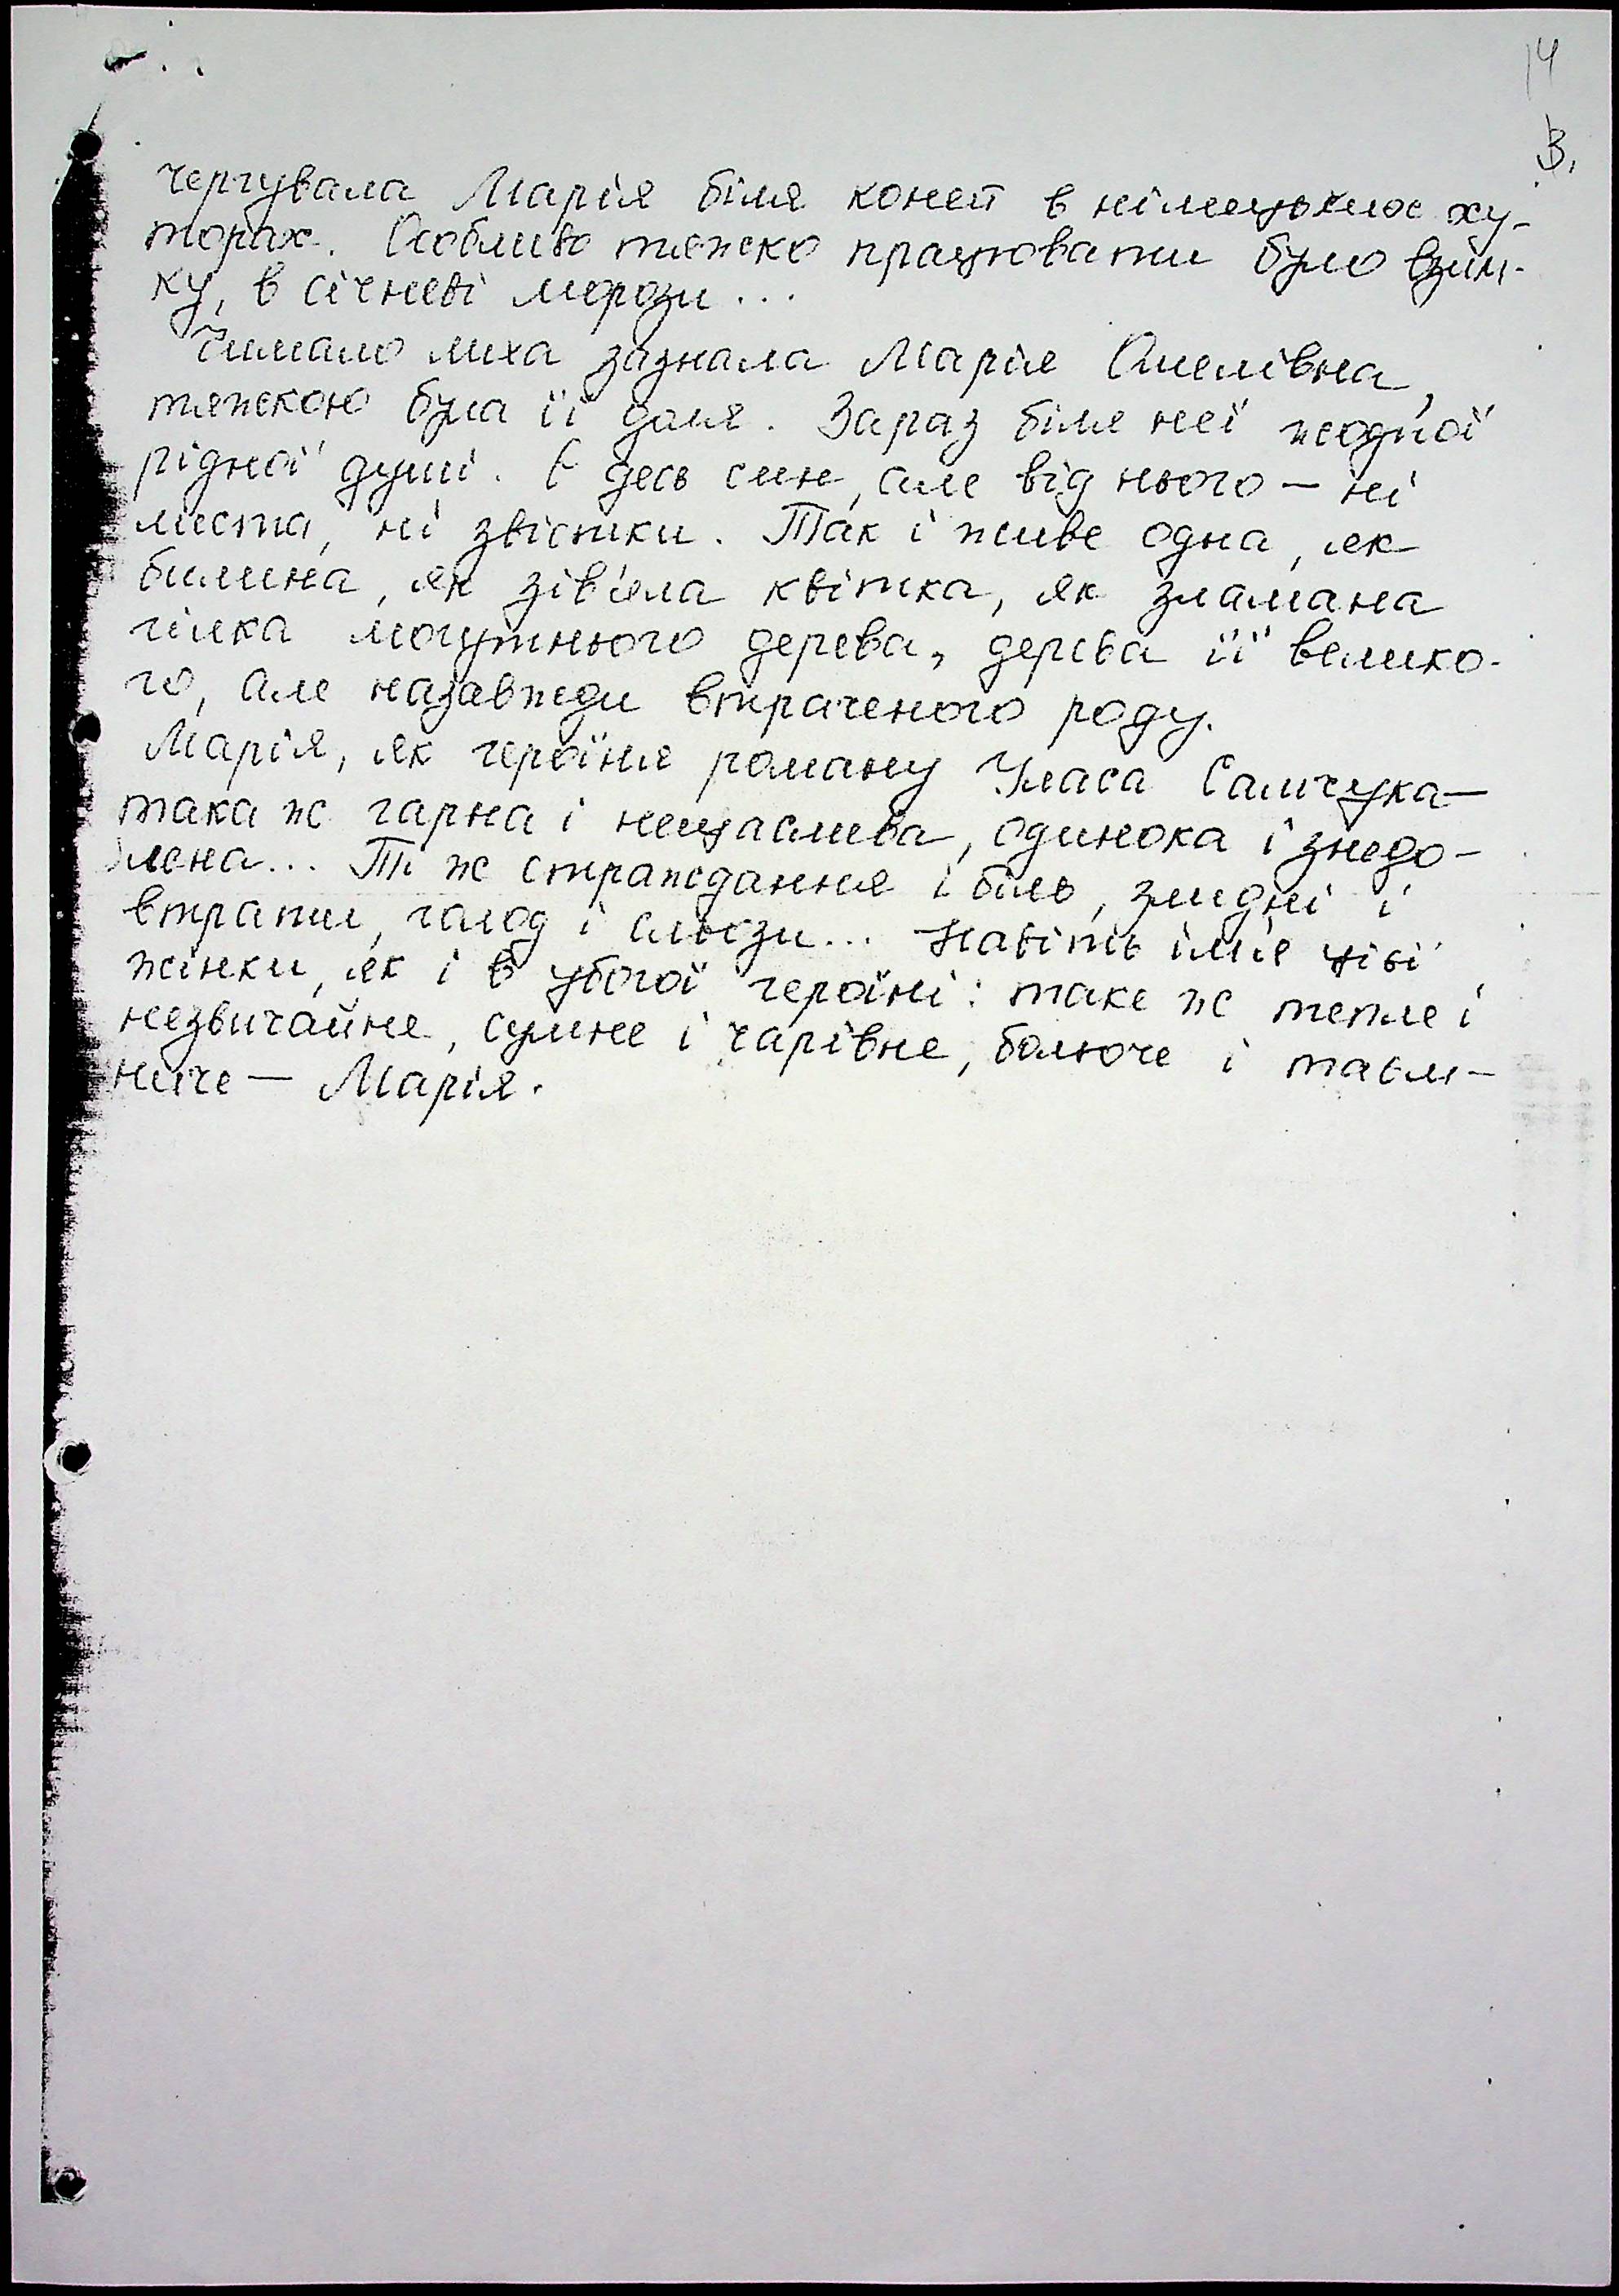 14
3.
чергувала Марія біля коней в німецьких ху-
торах. Особливо тяжко працювати було взим-
ку, в січневі морози...
Чимало лиха зазнала Марія Омелівна,
тяжкою була її доля. Зараз біля неї жодної
рідної душі. Є десь син, але від нього — ні
листа, ні звістки. Так і живе одна, як
билина, як зів'яла квітка, як зламана
гілка могутнього дерева, дерева її велико-
го, але назавжди втраченого роду.
Марія, як героїня роману Уласа Самчука —
така ж гарна і нещаслива, одинока і знедо-
лена... Ті ж страждання і біль, злидні і
втрати, голод і сльози... Навіть ім'я цієї
жінки, як і в убогої героїні: таке ж тепле і
незвичайне, сумне і чарівне, болюче і таєм-
ниче — Марія.